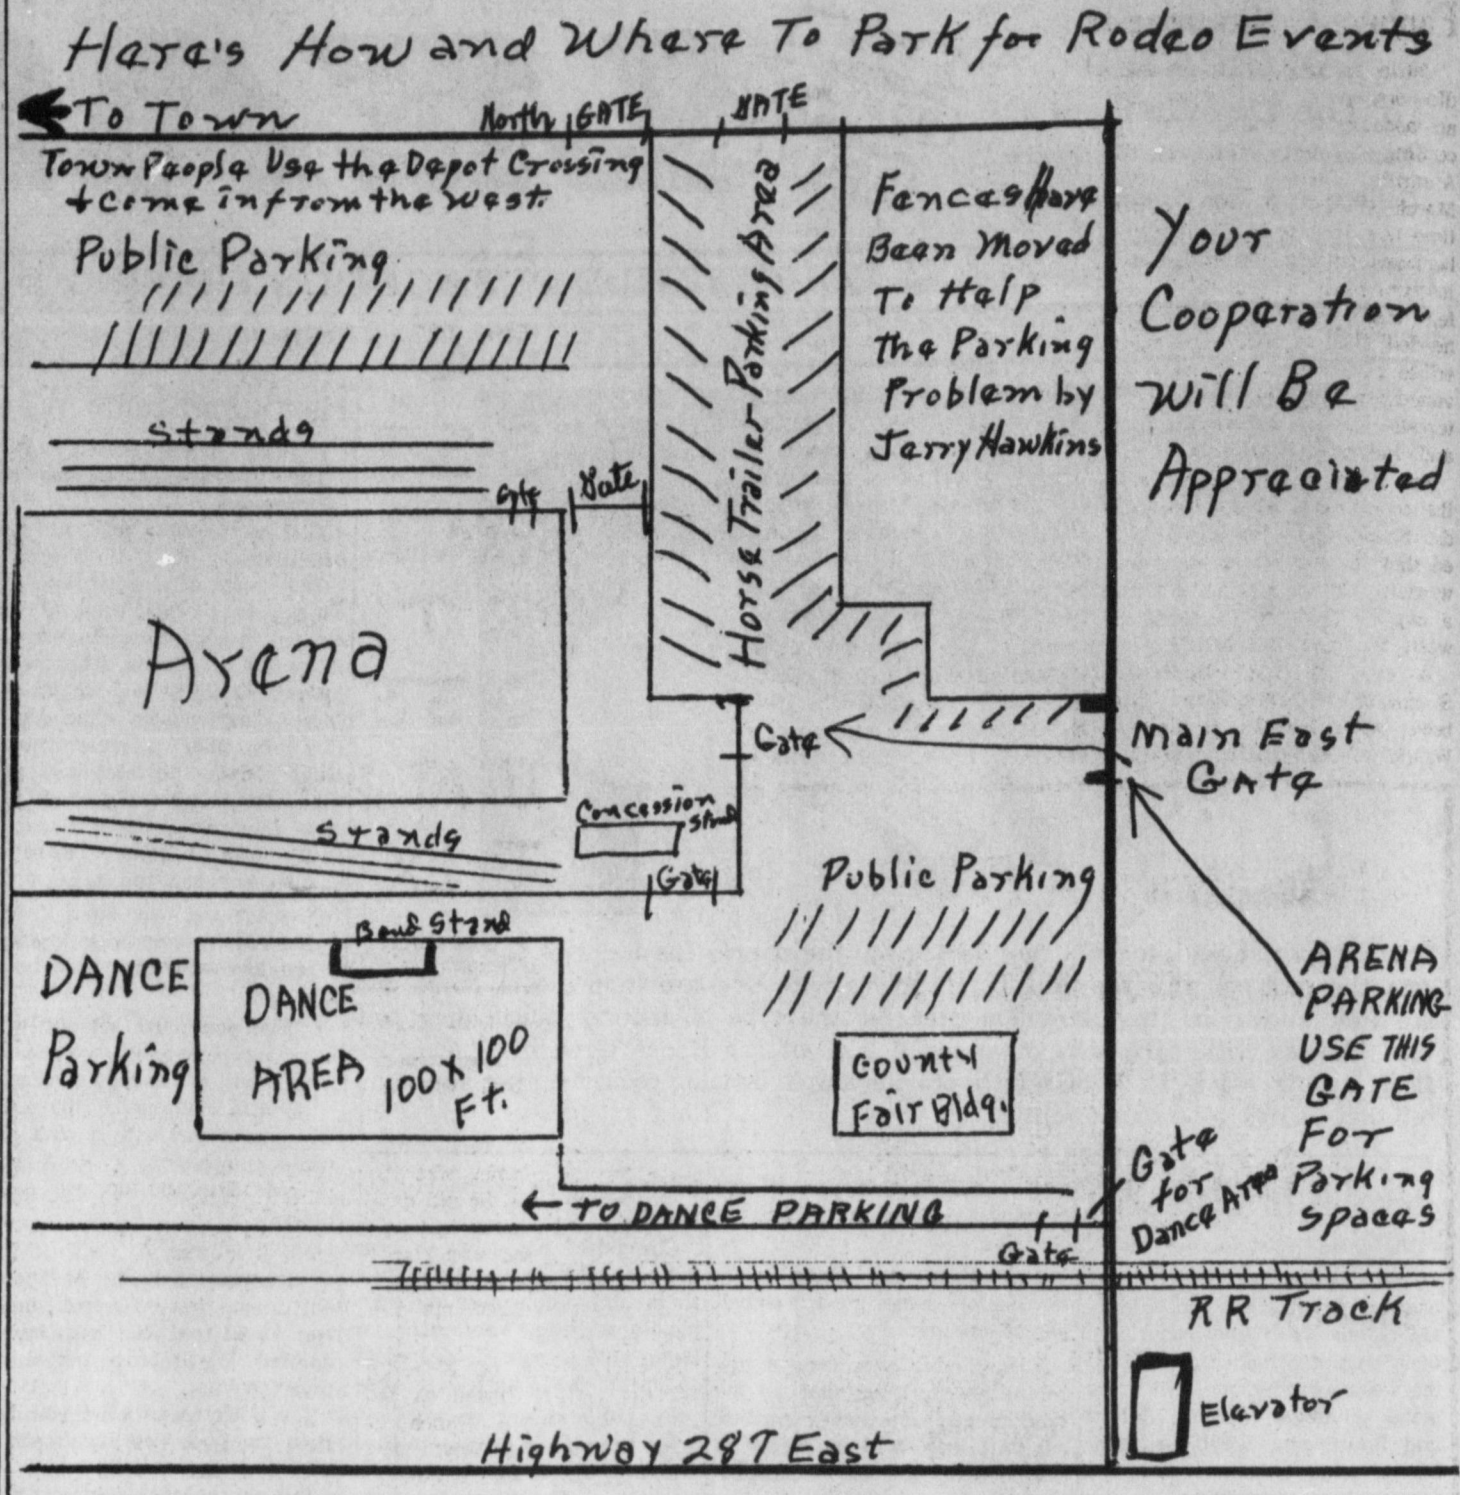 Here's How and Where To Park for Rodeo Events
To Town
North GATE
GATE
Town People Use the Depot Crossing
+ come in from the west.
Public Parking
Stands
Gate
Gate
Arena
Horse Trailer Parking Area
Fences Have
Been Moved
To Help
the Parking
Problem by
Jerry Hawkins
Your
Cooperation
will Be
Appreciated
Gate
Main East
GAte
Concession
Stand
Stands
Gate
Public Parking
Band Stand
DANCE
Parking
DANCE
AREA 100 x 100
Ft.
County
Fair Bldg.
ARENA
PARKING
USE THIS
GATE
For
Parking
Spaces
Gate
for
Dance Area
← TO DANCE PARKING
Gate
RR Track
Elevator
Highway 287 East